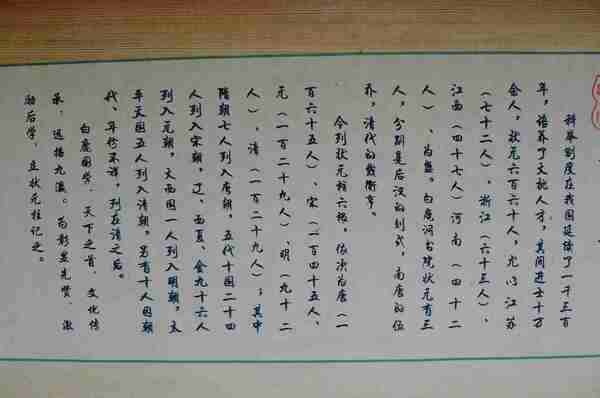 科举制度在我国延续了一千三百
年，培养了大批人才，其间进士十万
余人，状元六百六十人，尤以江苏
（七十二人）、浙江（六十三人）、
江西（四十七人）河南（四十二
人）、为盛。白鹿洞书院状元有三
人，分别是后汉的刘式，南唐的伍
乔，清代的戴衢亨。
今列状元柱六根，依次为唐（一
百六十五人）、宋（一百四十五人、
元（一百二十九人）、明（九十二
人）、清（一百二十九人）；其中
隋朝七人列入唐朝，五代十国二十四
人列入宋朝，辽、西夏、金九十六人
列入元朝，大西国一人列入明朝，太
平天国五人列入清朝，另有十人因朝
代、年份不详，列在清之后。
白鹿国学，天下之首，文化传
承，远播九瀛。为彰显先贤，激
励后学，立状元柱记之。